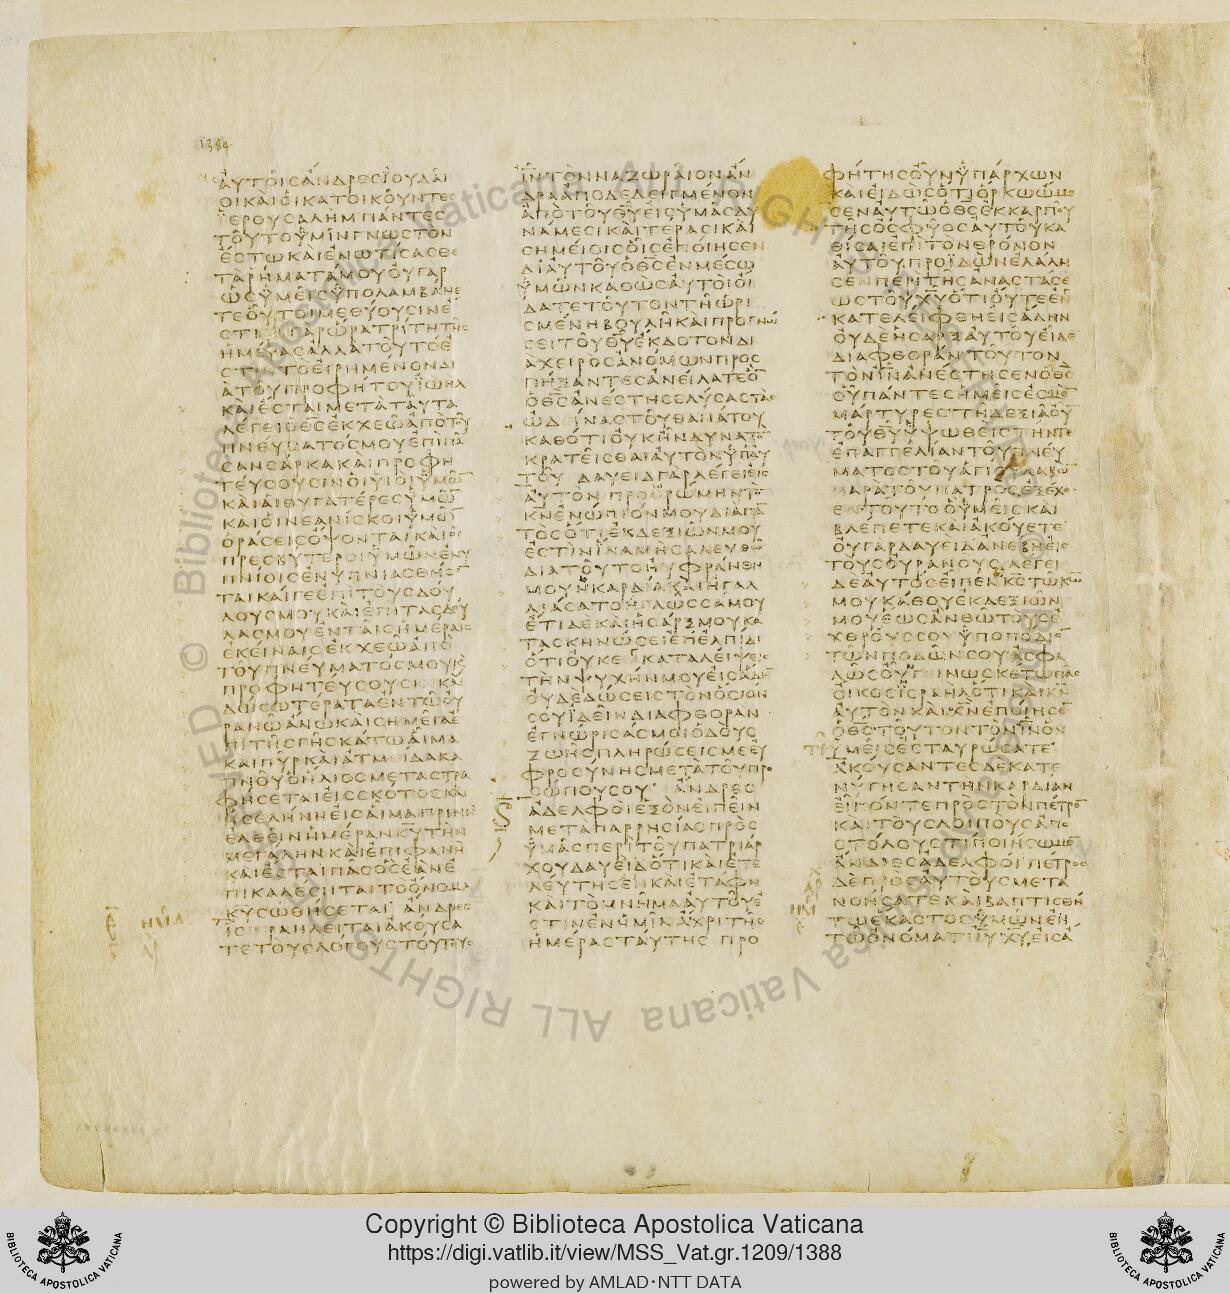 1384
ΑΥΤΟΙΣΑΝΔΡΕΣΙΟΥΔΑΙ
ΟΙΚΑΙΟΙΚΑΤΟΙΚΟΥΝΤΕΣ
ΙΕΡΟΥΣΑΛΗΜΠΑΝΤΕΣ
ΤΟΥΤΟΥΜΙΝΓΝΩΣΤΟΝ
ΕΣΤΩΚΑΙΕΝΩΤΙΣΑΣΘΕ
ΤΑΡΗΜΑΤΑΜΟΥΟΥΓΑΡ
ΩΣΥΜΕΙΣΥΠΟΛΑΜΒΑΝΕ
ΤΕΟΥΤΟΙΜΕΘΥΟΥΣΙΝΕ
ΣΤΙΓΑΡΩΡΑΤΡΙΤΗΤΗΣ
ΗΜΕΡΑΣΑΛΛΑΤΟΥΤΟΕ
ΣΤΙΤΟΕΙΡΗΜΕΝΟΝΔΙ
ΑΤΟΥΠΡΟΦΗΤΟΥΙΩΗΛ
ΚΑΙΕΣΤΑΙΜΕΤΑΤΑΥΤΑ
ΛΕΓΕΙΟΘΣΕΚΧΕΩΑΠΟΤΟΥ
ΠΝΕΥΜΑΤΟΣΜΟΥΕΠΙΠΑ
ΣΑΝΣΑΡΚΑΚΑΙΠΡΟΦΗ
ΤΕΥΣΟΥΣΙΝΟΙΥΙΟΙΥΜΩΝ
ΚΑΙΑΙΘΥΓΑΤΕΡΕΣΥΜΩΝ
ΚΑΙΟΙΝΕΑΝΙΣΚΟΙΥΜΩΝ
ΟΡΑΣΕΙΣΟΨΟΝΤΑΙΚΑΙΟΙ
ΠΡΕΣΒΥΤΕΡΟΙΥΜΩΝΕΝΥ
ΠΝΙΟΙΣΕΝΥΠΝΙΑΣΘΗΣΟΝ
ΤΑΙΚΑΙΓΕΕΠΙΤΟΥΣΔΟΥ
ΛΟΥΣΜΟΥΚΑΙΕΠΙΤΑΣΔΟΥ
ΛΑΣΜΟΥΕΝΤΑΙΣΗΜΕΡΑΙΣ
ΕΚΕΙΝΑΙΣΕΚΧΕΩΑΠΟ
ΤΟΥΠΝΕΥΜΑΤΟΣΜΟΥΚΑΙ
ΠΡΟΦΗΤΕΥΣΟΥΣΙΝΚΑΙ
ΔΩΣΩΤΕΡΑΤΑΕΝΤΩΟΥ
ΡΑΝΩΑΝΩΚΑΙΣΗΜΕΙΑΕ
ΠΙΤΗΣΓΗΣΚΑΤΩΑΙΜΑ
ΚΑΙΠΥΡΚΑΙΑΤΜΕΙΔΑΚΑ
ΠΝΟΥΟΗΛΙΟΣΜΕΤΑΣΤΡΑ
ΦΗΣΕΤΑΙΕΙΣΣΚΟΤΟΣΚΑΙ
ΗΣΕΛΗΝΗΕΙΣΑΙΜΑΠΡΙΝΗ
ΕΛΘΕΙΝΗΜΕΡΑΝΚΥΤΗΝ
ΜΕΓΑΛΗΝΚΑΙΕΠΙΦΑΝΗ
ΚΑΙΕΣΤΑΙΠΑΣΟΣΕΑΝΕ
ΠΙΚΑΛΕΣΗΤΑΙΤΟΟΝΟΜΑ
ΚΥΣΩΘΗΣΕΤΑΙ ΑΝΔΡΕΣ
ΙΣΡΑΗΛΕΙΤΑΙΑΚΟΥΣΑ
ΤΕΤΟΥΣΛΟΓΟΥΣΤΟΥΤΟΥΣ
ΙΝΤΟΝΝΑΖΩΡΑΙΟΝΑΝ
ΔΡΑΑΠΟΔΕΔΕΙΓΜΕΝΟΝ
ΑΠΟΤΟΥΘΥΕΙΣΥΜΑΣΔΥ
ΝΑΜΕΣΙΚΑΙΤΕΡΑΣΙΚΑΙ
ΣΗΜΕΙΟΙΣΟΙΣΕΠΟΙΗΣΕΝ
ΔΙΑΥΤΟΥΟΘΣΕΝΜΕΣΩ
ΥΜΩΝΚΑΘΩΣΑΥΤΟΙΟΙ
ΔΑΤΕΤΟΥΤΟΝΤΗΩΡΙ
ΣΜΕΝΗΒΟΥΛΗΚΑΙΠΡΟΓΝΩ
ΣΕΙΤΟΥΘΥΕΚΔΟΤΟΝΔΙ
ΑΧΕΙΡΟΣΑΝΟΜΩΝΠΡΟΣ
ΠΗΞΑΝΤΕΣΑΝΕΙΛΑΤΕΟΝ
ΟΘΣΑΝΕΣΤΗΣΕΛΥΣΑΣΤΑΣ
ΩΔΕΙΝΑΣΤΟΥΘΑΝΑΤΟΥ
ΚΑΘΟΤΙΟΥΚΗΝΔΥΝΑΤΟΝ
ΚΡΑΤΕΙΣΘΑΙΑΥΤΟΝΥΠΑΥ
ΤΟΥ ΔΑΥΕΙΔΓΑΡΛΕΓΕΙΕΙΣ
ΑΥΤΟΝ ΠΡΟΟΡΩΜΗΝΤΟΝ
ΚΝΕΝΩΠΙΟΝΜΟΥΔΙΑΠΑΝ
ΤΟΣΟΤΙΕΚΔΕΞΙΩΝΜΟΥ
ΕΣΤΙΝΙΝΑΜΗΣΑΛΕΥΘΩ
ΔΙΑΤΟΥΤΟΗΥΦΡΑΝΘΗ
ΜΟΥΗΚΑΡΔΙΑΚΑΙΗΓΑΛ
ΛΙΑΣΑΤΟΗΓΛΩΣΣΑΜΟΥ
ΕΤΙΔΕΚΑΙΗΣΑΡΞΜΟΥΚΑ
ΤΑΣΚΗΝΩΣΕΙΕΠΕΛΠΙΔΙ
ΟΤΙΟΥΚΕΝΚΑΤΑΛΕΙΨΕΙΣ
ΤΗΝΨΥΧΗΝΜΟΥΕΙΣΑΔΗΝ
ΟΥΔΕΔΩΣΕΙΣΤΟΝΟΣΙΟΝ
ΣΟΥΙΔΕΙΝΔΙΑΦΘΟΡΑΝ
ΕΓΝΩΡΙΣΑΣΜΟΙΟΔΟΥΣ
ΖΩΗΣΠΛΗΡΩΣΕΙΣΜΕΕΥ
ΦΡΟΣΥΝΗΣΜΕΤΑΤΟΥΠΡΟ
ΣΩΠΟΥΣΟΥ ΑΝΔΡΕΣ
ΑΔΕΛΦΟΙΕΞΟΝΕΙΠΕΙΝ
ΜΕΤΑΠΑΡΡΗΣΙΑΣΠΡΟΣ
ΥΜΑΣΠΕΡΙΤΟΥΠΑΤΡΙΑΡ
ΧΟΥΔΑΥΕΙΔΟΤΙΚΑΙΕΤΕ
ΛΕΥΤΗΣΕΝΚΑΙΕΤΑΦΗ
ΚΑΙΤΟΜΝΗΜΑΑΥΤΟΥΕ
ΣΤΙΝΕΝΥΜΙΝΑΧΡΙΤΗΣ
ΗΜΕΡΑΣΤΑΥΤΗΣ ΠΡΟ
ΦΗΤΗΣΟΥΝΥΠΑΡΧΩΝ
ΚΑΙΕΙΔΩΣΟΤΙΟΡΚΩΩΜΟ
ΣΕΝΑΥΤΩΟΘΣΕΚΚΑΡΠΟΥ
ΤΗΣΟΣΦΥΟΣΑΥΤΟΥΚΑ
ΘΙΣΑΙΕΠΙΤΟΝΘΡΟΝΟΝ
ΑΥΤΟΥΠΡΟΙΔΩΝΕΛΑΛΗ
ΣΕΝΠΕΡΙΤΗΣΑΝΑΣΤΑΣΕ
ΩΣΤΟΥΧΥΟΤΙΟΥΤΕΕΝ
ΚΑΤΕΛΕΙΦΘΗΕΙΣΑΔΗΝ
ΟΥΔΕΗΣΑΡΞΑΥΤΟΥΕΙΔΕ
ΔΙΑΦΘΟΡΑΝΤΟΥΤΟΝ
ΤΟΝΙΝΑΝΕΣΤΗΣΕΝΟΘΣ
ΟΥΠΑΝΤΕΣΗΜΕΙΣΕΣΜΕΝ
ΜΑΡΤΥΡΕΣΤΗΔΕΞΙΑΟΥΝ
ΤΟΥΘΥΥΨΩΘΕΙΣΤΗΝΤΕ
ΕΠΑΓΓΕΛΙΑΝΤΟΥΠΝΕΥ
ΜΑΤΟΣΤΟΥΑΓΙΟΥΛΑΒΩΝ
ΠΑΡΑΤΟΥΠΑΤΡΟΣΕΞΕΧΕ
ΕΝΤΟΥΤΟΟΥΜΕΙΣΚΑΙ
ΒΛΕΠΕΤΕΚΑΙΑΚΟΥΕΤΕ
ΟΥΓΑΡΔΑΥΕΙΔΑΝΕΒΗΕΙΣ
ΤΟΥΣΟΥΡΑΝΟΥΣΛΕΓΕΙ
ΔΕΑΥΤΟΣΕΙΠΕΝΚΣΤΩΚΩ
ΜΟΥΚΑΘΟΥΕΚΔΕΞΙΩΝ
ΜΟΥΕΩΣΑΝΘΩΤΟΥΣΕ
ΧΘΡΟΥΣΣΟΥΥΠΟΠΟΔΙΟΝ
ΤΩΝΠΟΔΩΝΣΟΥΑΣΦΑ
ΛΩΣΟΥΝΓΙΝΩΣΚΕΤΩΠΑΣ
ΟΙΚΟΣΙΣΡΑΗΛΟΤΙΚΑΙΚΝ
ΑΥΤΟΝΚΑΙΧΝΕΠΟΙΗΣΕΝ
ΟΘΣΤΟΥΤΟΝΤΟΝΙΝΟΝ
ΥΜΕΙΣΕΣΤΑΥΡΩΣΑΤΕ
ΑΚΟΥΣΑΝΤΕΣΔΕΚΑΤΕ
ΝΥΓΗΣΑΝΤΗΝΚΑΡΔΙΑΝ
ΕΙΠΟΝΤΕΠΡΟΣΤΟΝΠΕΤΡΟΝ
ΚΑΙΤΟΥΣΛΟΙΠΟΥΣΑΠΟ
ΣΤΟΛΟΥΣΤΙΠΟΙΗΣΩΜΕΝ
ΑΝΔΡΕΣΑΔΕΛΦΟΙΠΕΤΡΟΣ
ΔΕΠΡΟΣΑΥΤΟΥΣΜΕΤΑ
ΝΟΗΣΑΤΕΚΑΙΒΑΠΤΙΣΘΗ
ΤΩΕΚΑΣΤΟΣΥΜΩΝΕΝ
ΤΩΟΝΟΜΑΤΙΙΥΧΥΕΙΣΑ
Biblioteca Apostolica Vaticana ALL RIGHTS RESERVED ©
Copyright © Biblioteca Apostolica Vaticana
https://digi.vatlib.it/view/MSS_Vat.gr.1209/1388
powered by AMLAD·NTT DATA
BIBLIOTECA APOSTOLICA VATICANA
BIBLIOTECA APOSTOLICA VATICANA